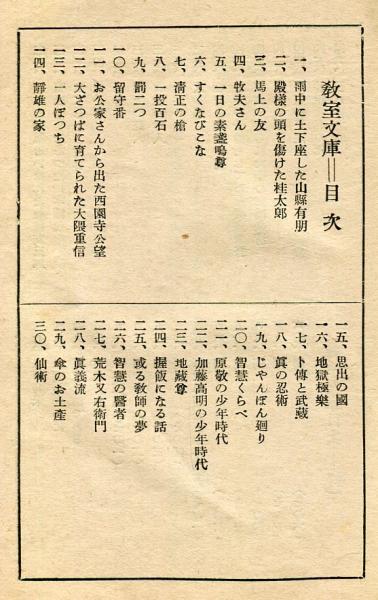 教室文庫＝目次
一、雨中に土下座した山縣有朋
二、殿樣の頭を傷けた桂太郎
三、馬上の友
四、牧夫さん
五、一日の素盞嗚尊
六、すくなびこな
七、淸正の槍
八、一投百石
九、罰二つ
一〇、留守番
一一、お公家さんから出た西園寺公望
一二、大ざつぱに育てられた大隈重信
一三、一人ぼつち
一四、靜雄の家
一五、思出の國
一六、地獄極樂
一七、卜傳と武藏
一八、眞の忍術
一九、じやんぽん廻り
二〇、智慧くらべ
二一、原敬の少年時代
二二、加藤高明の少年時代
二三、地藏尊
二四、握飯になる話
二五、或る敎師の夢
二六、智慧の醫者
二七、荒木又右衛門
二八、眞義流
二九、傘のお土產
三〇、仙術